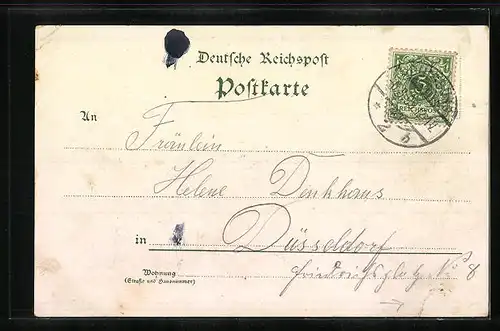 Deutsche Reichspost
Postkarte
An
Fräulein
Helene Denkhaus
in Düsseldorf
Wohnung
(Straße und Hausnummer)
Friedrichsplatz No 8
5